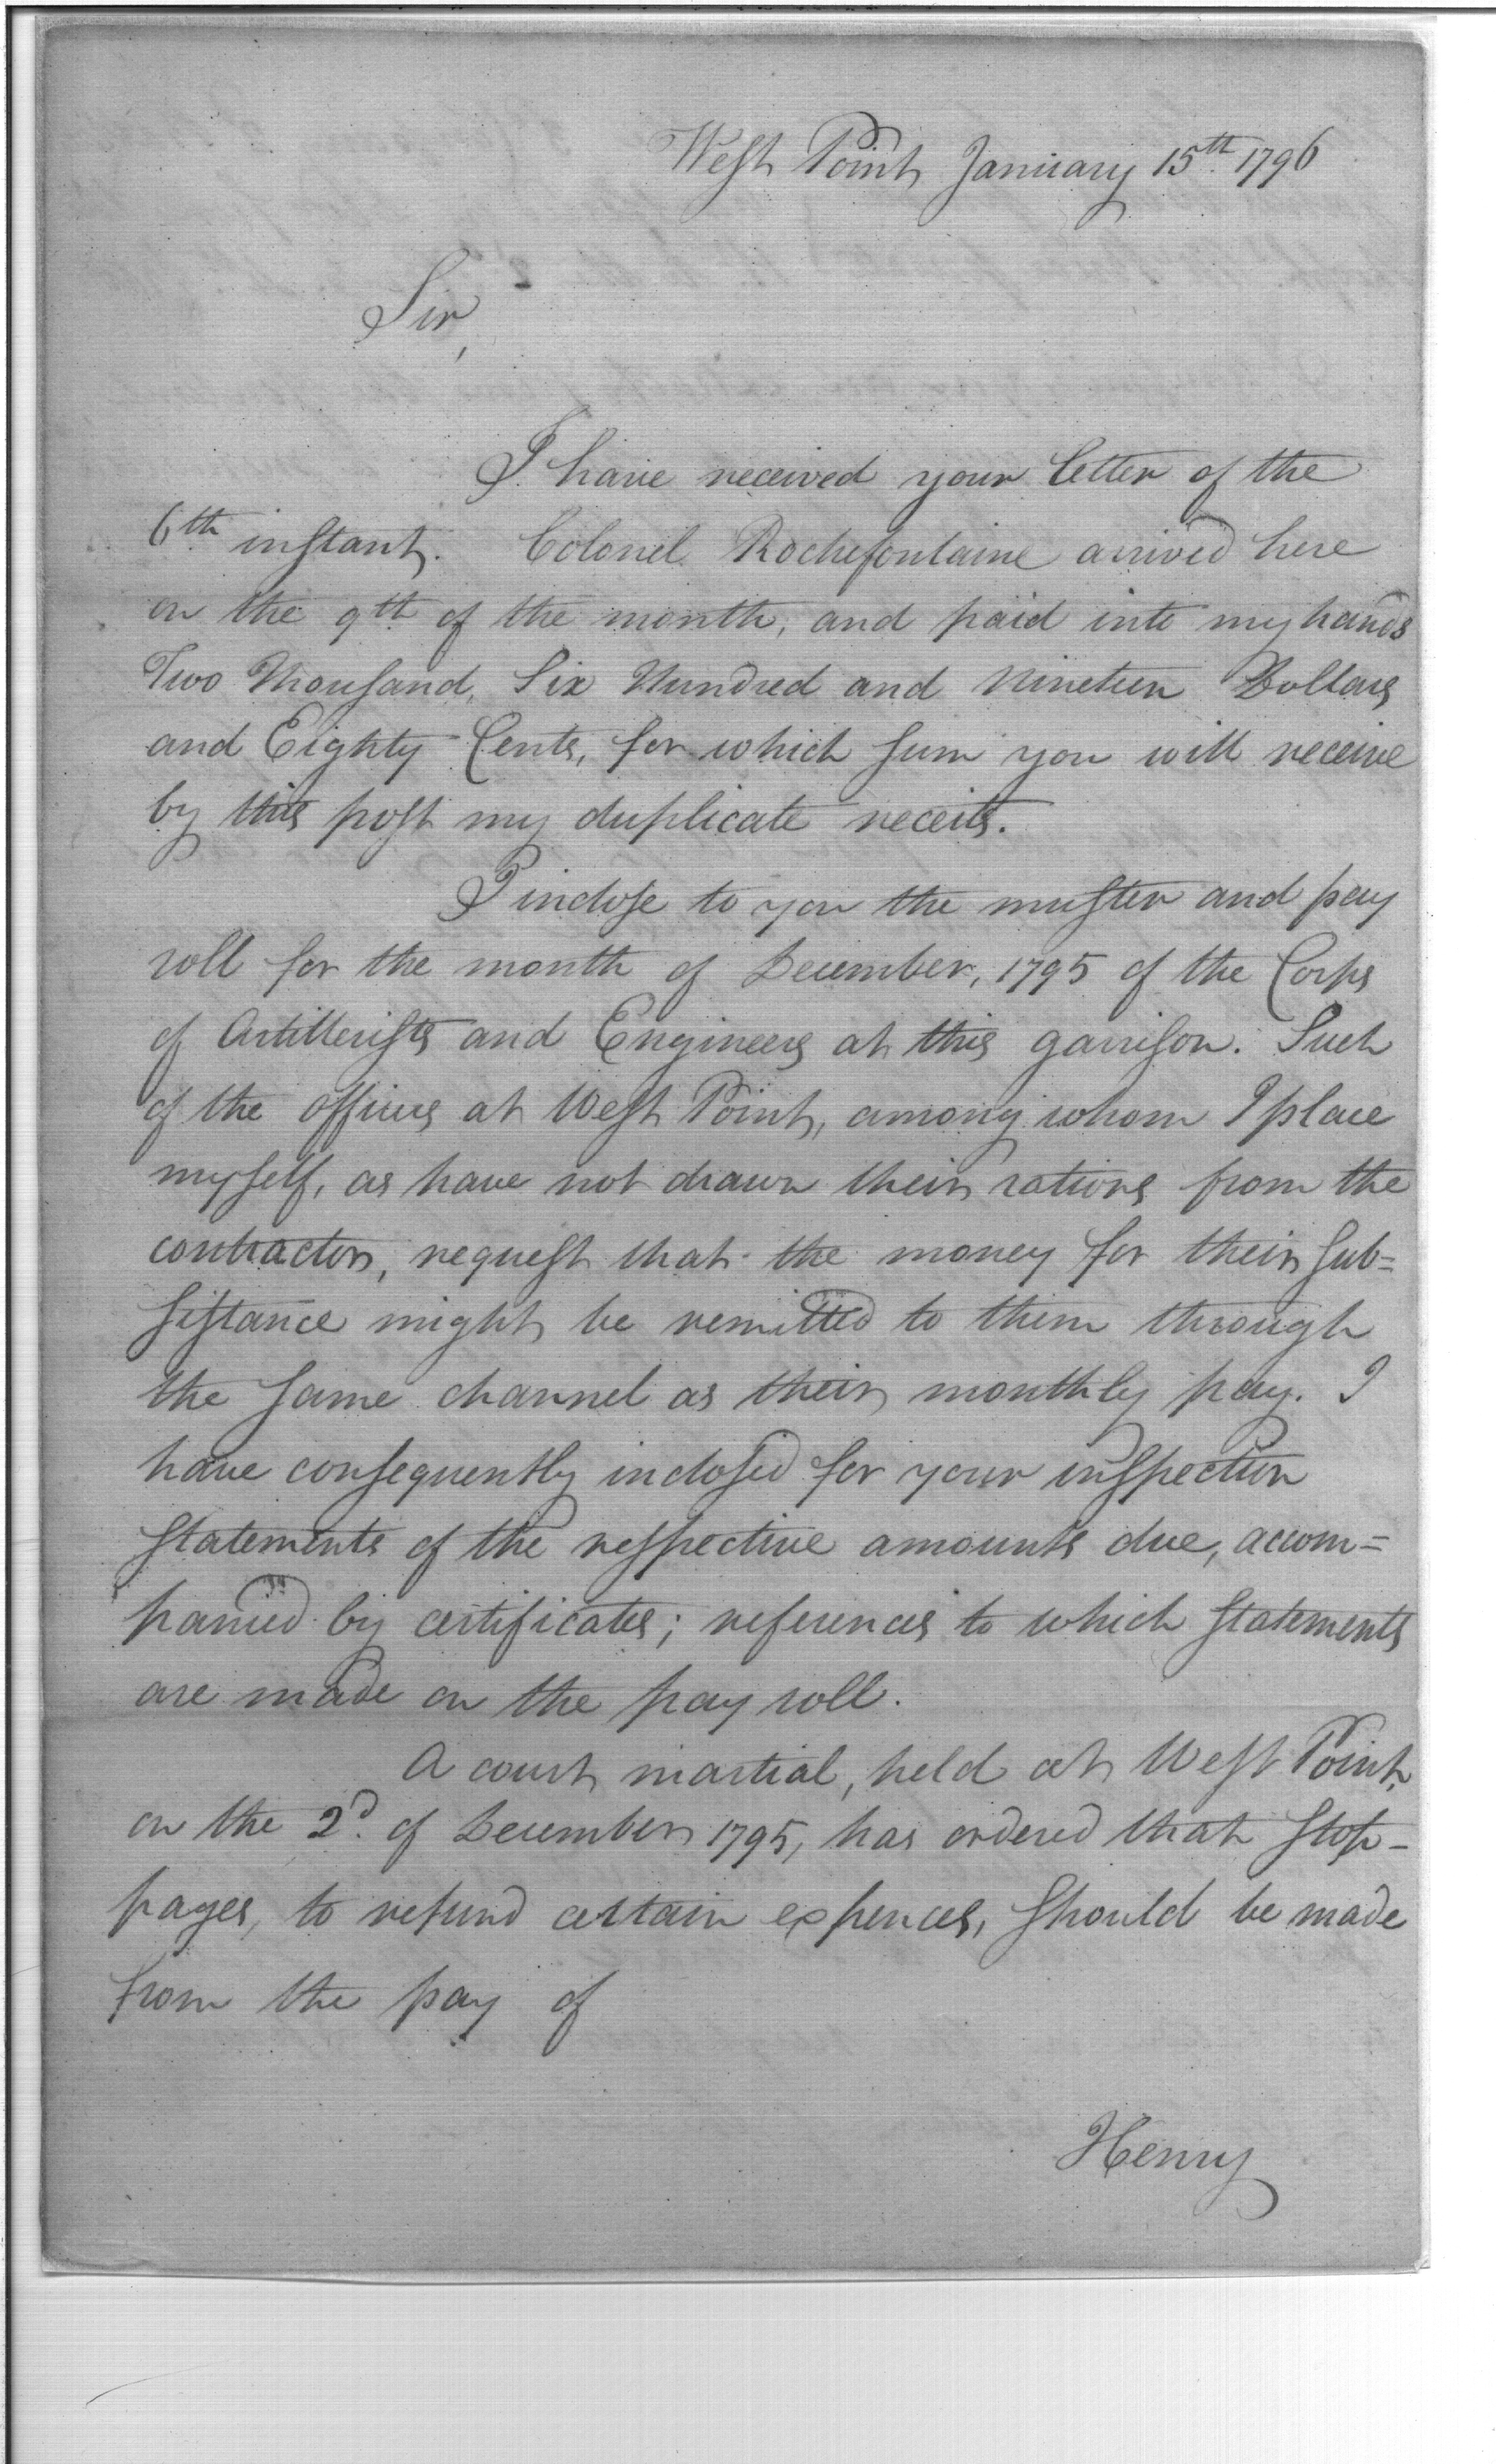 West Point January 15th 1796
Sir,
I have received your letter of the
6th instant. Colonel Rochefontaine arrived here
on the 9th of the month, and paid into my hands
Two Thousand, Six Hundred and Nineteen Dollars
and Eighty Cents, for which sum you will receive
by this post my duplicate receits.
I inclose to you the muster and pay
roll for the month of December, 1795 of the Corps
of Artillerists and Engineers at this garrison. Such
of the officers at West Point, among whom I place
myself, as have not drawn their rations from the
contractor, request that the money for their sub=
sistance might be remitted to them through
the same channel as their monthly pay. I
have consequently inclosed for your inspection
statements of the respective amounts due, accom=
panied by certificates; references to which statements
are made on the pay roll.
A court martial, held at West Point,
on the 2d. of December 1795, has ordered that stop-
pages, to refund certain expences, should be made
from the pay of
Henry